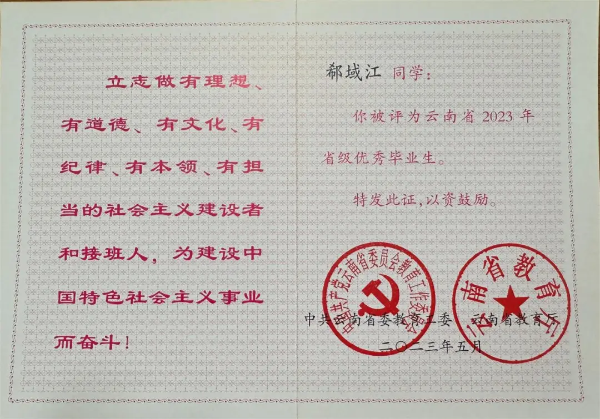 立志做有理想、
有道德、有文化、有
纪律、有本领、有担
当的社会主义建设者
和接班人，为建设中
国特色社会主义事业
而奋斗！
郗域江 同学：
你被评为云南省 2023 年
省级优秀毕业生。
特发此证，以资鼓励。
中国共产党云南省委员会教育工作委员会
云南省教育厅
中共云南省委教育工委 云南省教育厅
二〇二三年五月